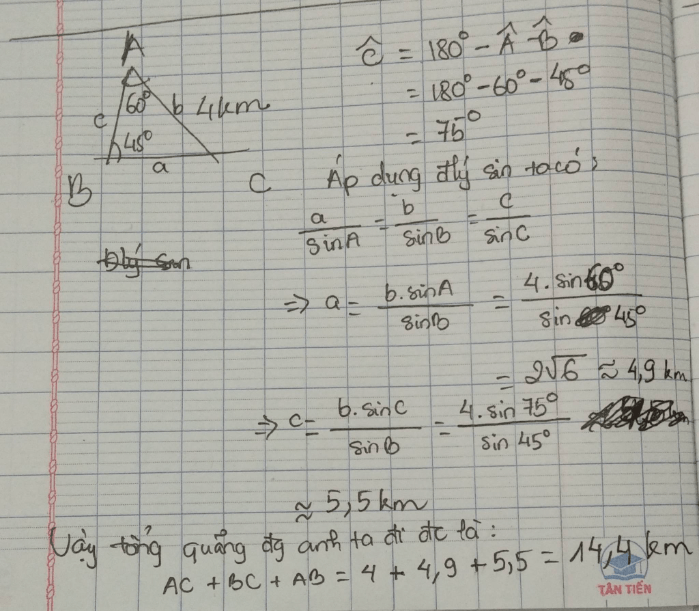 A
60°
c
b
4km
45°
a
B
C
Ĉ = 180° - Â - B̂
= 180° - 60° - 45°
= 75°
Áp dụng đlý sin ta có:
a/sinA = b/sinB = c/sinC
Đlý sin
=> a = b.sinA/sinB = 4.sin60°/sin 45°
= 2√6 ≈ 4,9 km
=> c = b.sinC/sinB = 4.sin 75°/sin 45°
≈ 5,5km
Vậy tổng quãng đg anh ta đi đc là:
AC + BC + AB = 4 + 4,9 + 5,5 = 14,4 km
TÂN TIẾN